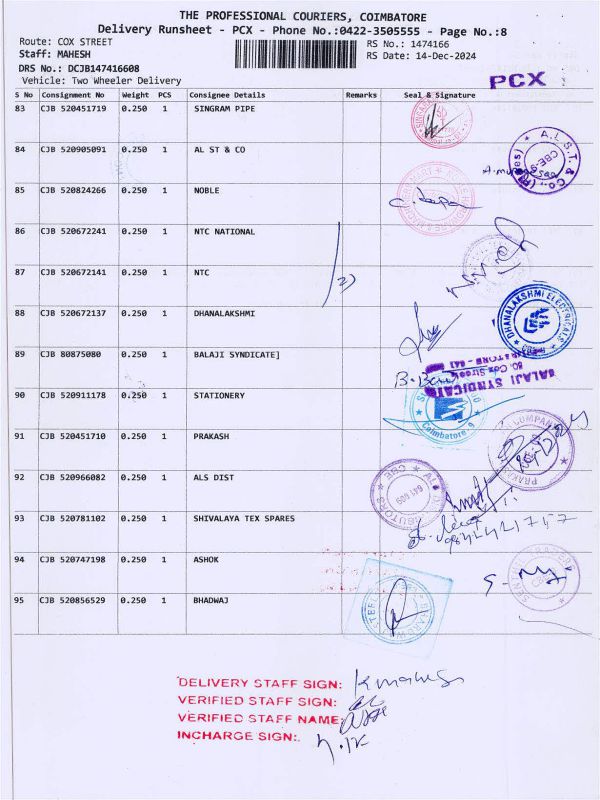 THE PROFESSIONAL COURIERS, COIMBATORE
Delivery Runsheet - PCX - Phone No.:0422-3505555 - Page No.:8
Route: COX STREET RS No.: 1474166
Staff: MAHESH RS Date: 14-Dec-2024
DRS No.: DCJB147416608
Vehicle: Two Wheeler Delivery
PCX
S No Consignment No Weight PCS Consignee Details Remarks Seal & Signature
83 CJB 520451719 0.250 1 SINGRAM PIPE
84 CJB 520905091 0.250 1 AL ST & CO
A.L.S.T. & Co., CBE-9
85 CJB 520824266 0.250 1 NOBLE
86 CJB 520672241 0.250 1 NTC NATIONAL
87 CJB 520672141 0.250 1 NTC
2)
88 CJB 520672137 0.250 1 DHANALAKSHMI
DHANALAKSHMI ELECTRICALS
89 CJB 80875080 0.250 1 BALAJI SYNDICATE]
BALAJI SYNDICATE
80, Cox Street
90 CJB 520911178 0.250 1 STATIONERY
Coimbatore-9
91 CJB 520451710 0.250 1 PRAKASH
92 CJB 520966082 0.250 1 ALS DIST
93 CJB 520781102 0.250 1 SHIVALAYA TEX SPARES
94 CJB 520747198 0.250 1 ASHOK
95 CJB 520856529 0.250 1 BHADWAJ
DELIVERY STAFF SIGN:
VERIFIED STAFF SIGN:
VERIFIED STAFF NAME:
INCHARGE SIGN: